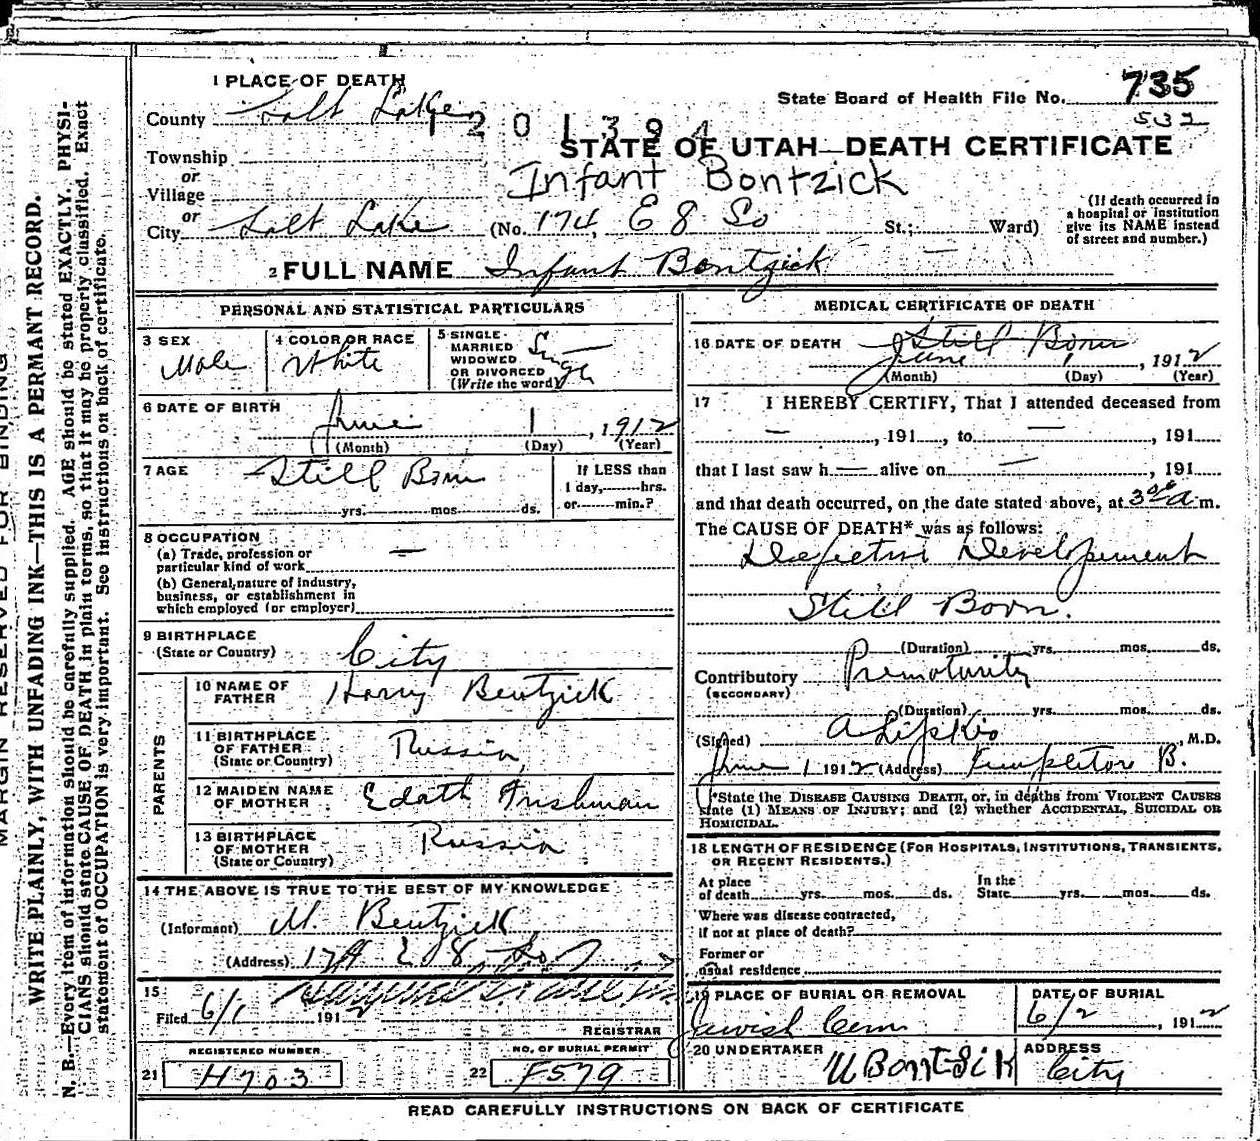 1 PLACE OF DEATH
County Salt Lake
State Board of Health File No. 735
532
201394
STATE OF UTAH—DEATH CERTIFICATE
Township
or
Village
Infant Bontzick
or
City Salt Lake (No. 174, E 8 So St.; Ward)
(If death occurred in
a hospital or institution
give its NAME instead
of street and number.)
2 FULL NAME Infant Bontzick
PERSONAL AND STATISTICAL PARTICULARS
3 SEX
Male
4 COLOR OR RACE
White
5 SINGLE
MARRIED
WIDOWED
OR DIVORCED
(Write the word)
Single
6 DATE OF BIRTH
June 1, 1912
(Month) (Day) (Year)
7 AGE
Still Born
yrs. mos. ds.
If LESS than
1 day, hrs.
or min.?
8 OCCUPATION
(a) Trade, profession or
particular kind of work —
(b) General nature of industry,
business, or establishment in
which employed (or employer)
9 BIRTHPLACE
(State or Country) City
PARENTS
10 NAME OF
FATHER Harry Bentzick
11 BIRTHPLACE
OF FATHER
(State or Country) Russia,
12 MAIDEN NAME
OF MOTHER Edath Frishman
13 BIRTHPLACE
OF MOTHER
(State or Country) Russia
14 THE ABOVE IS TRUE TO THE BEST OF MY KNOWLEDGE
(Informant) M. Bentzick
(Address) 174 E 8 So
15
Filed 6/1 1912
REGISTRAR
REGISTERED NUMBER
21 H703
NO. OF BURIAL PERMIT
22 F579
MEDICAL CERTIFICATE OF DEATH
16 DATE OF DEATH Still Born
June 1, 1912
(Month) (Day) (Year)
17 I HEREBY CERTIFY, That I attended deceased from
—, 191, to —, 191
that I last saw h — alive on —, 191
and that death occurred, on the date stated above, at 3 a m.
The CAUSE OF DEATH* was as follows:
Defective Development
Still Born.
(Duration) yrs. mos. ds.
Contributory Prematurity
(SECONDARY)
(Duration) yrs. mos. ds.
(Signed) A Lipkis, M.D.
June 1 1912 (Address) Templeton B.
*State the DISEASE CAUSING DEATH, or, in deaths from VIOLENT CAUSES
state (1) MEANS OF INJURY; and (2) whether ACCIDENTAL, SUICIDAL OR
HOMICIDAL.
18 LENGTH OF RESIDENCE (FOR HOSPITALS, INSTITUTIONS, TRANSIENTS,
OR RECENT RESIDENTS.)
At place
of death yrs. mos. ds.
In the
State yrs. mos. ds.
Where was disease contracted,
if not at place of death?
Former or
usual residence
19 PLACE OF BURIAL OR REMOVAL
Jewish Cem
DATE OF BURIAL
6/2, 1912
20 UNDERTAKER
M Bontzik
ADDRESS
City
READ CAREFULLY INSTRUCTIONS ON BACK OF CERTIFICATE
MARGIN RESERVED FOR BINDING
WRITE PLAINLY, WITH UNFADING INK—THIS IS A PERMANT RECORD.
N. B.—Every item of information should be carefully supplied. AGE should be stated EXACTLY. PHYSI-
CIANS should state CAUSE OF DEATH in plain terms, so that it may be properly classified. Exact
statement of OCCUPATION is very important. See instructions on back of certificate.